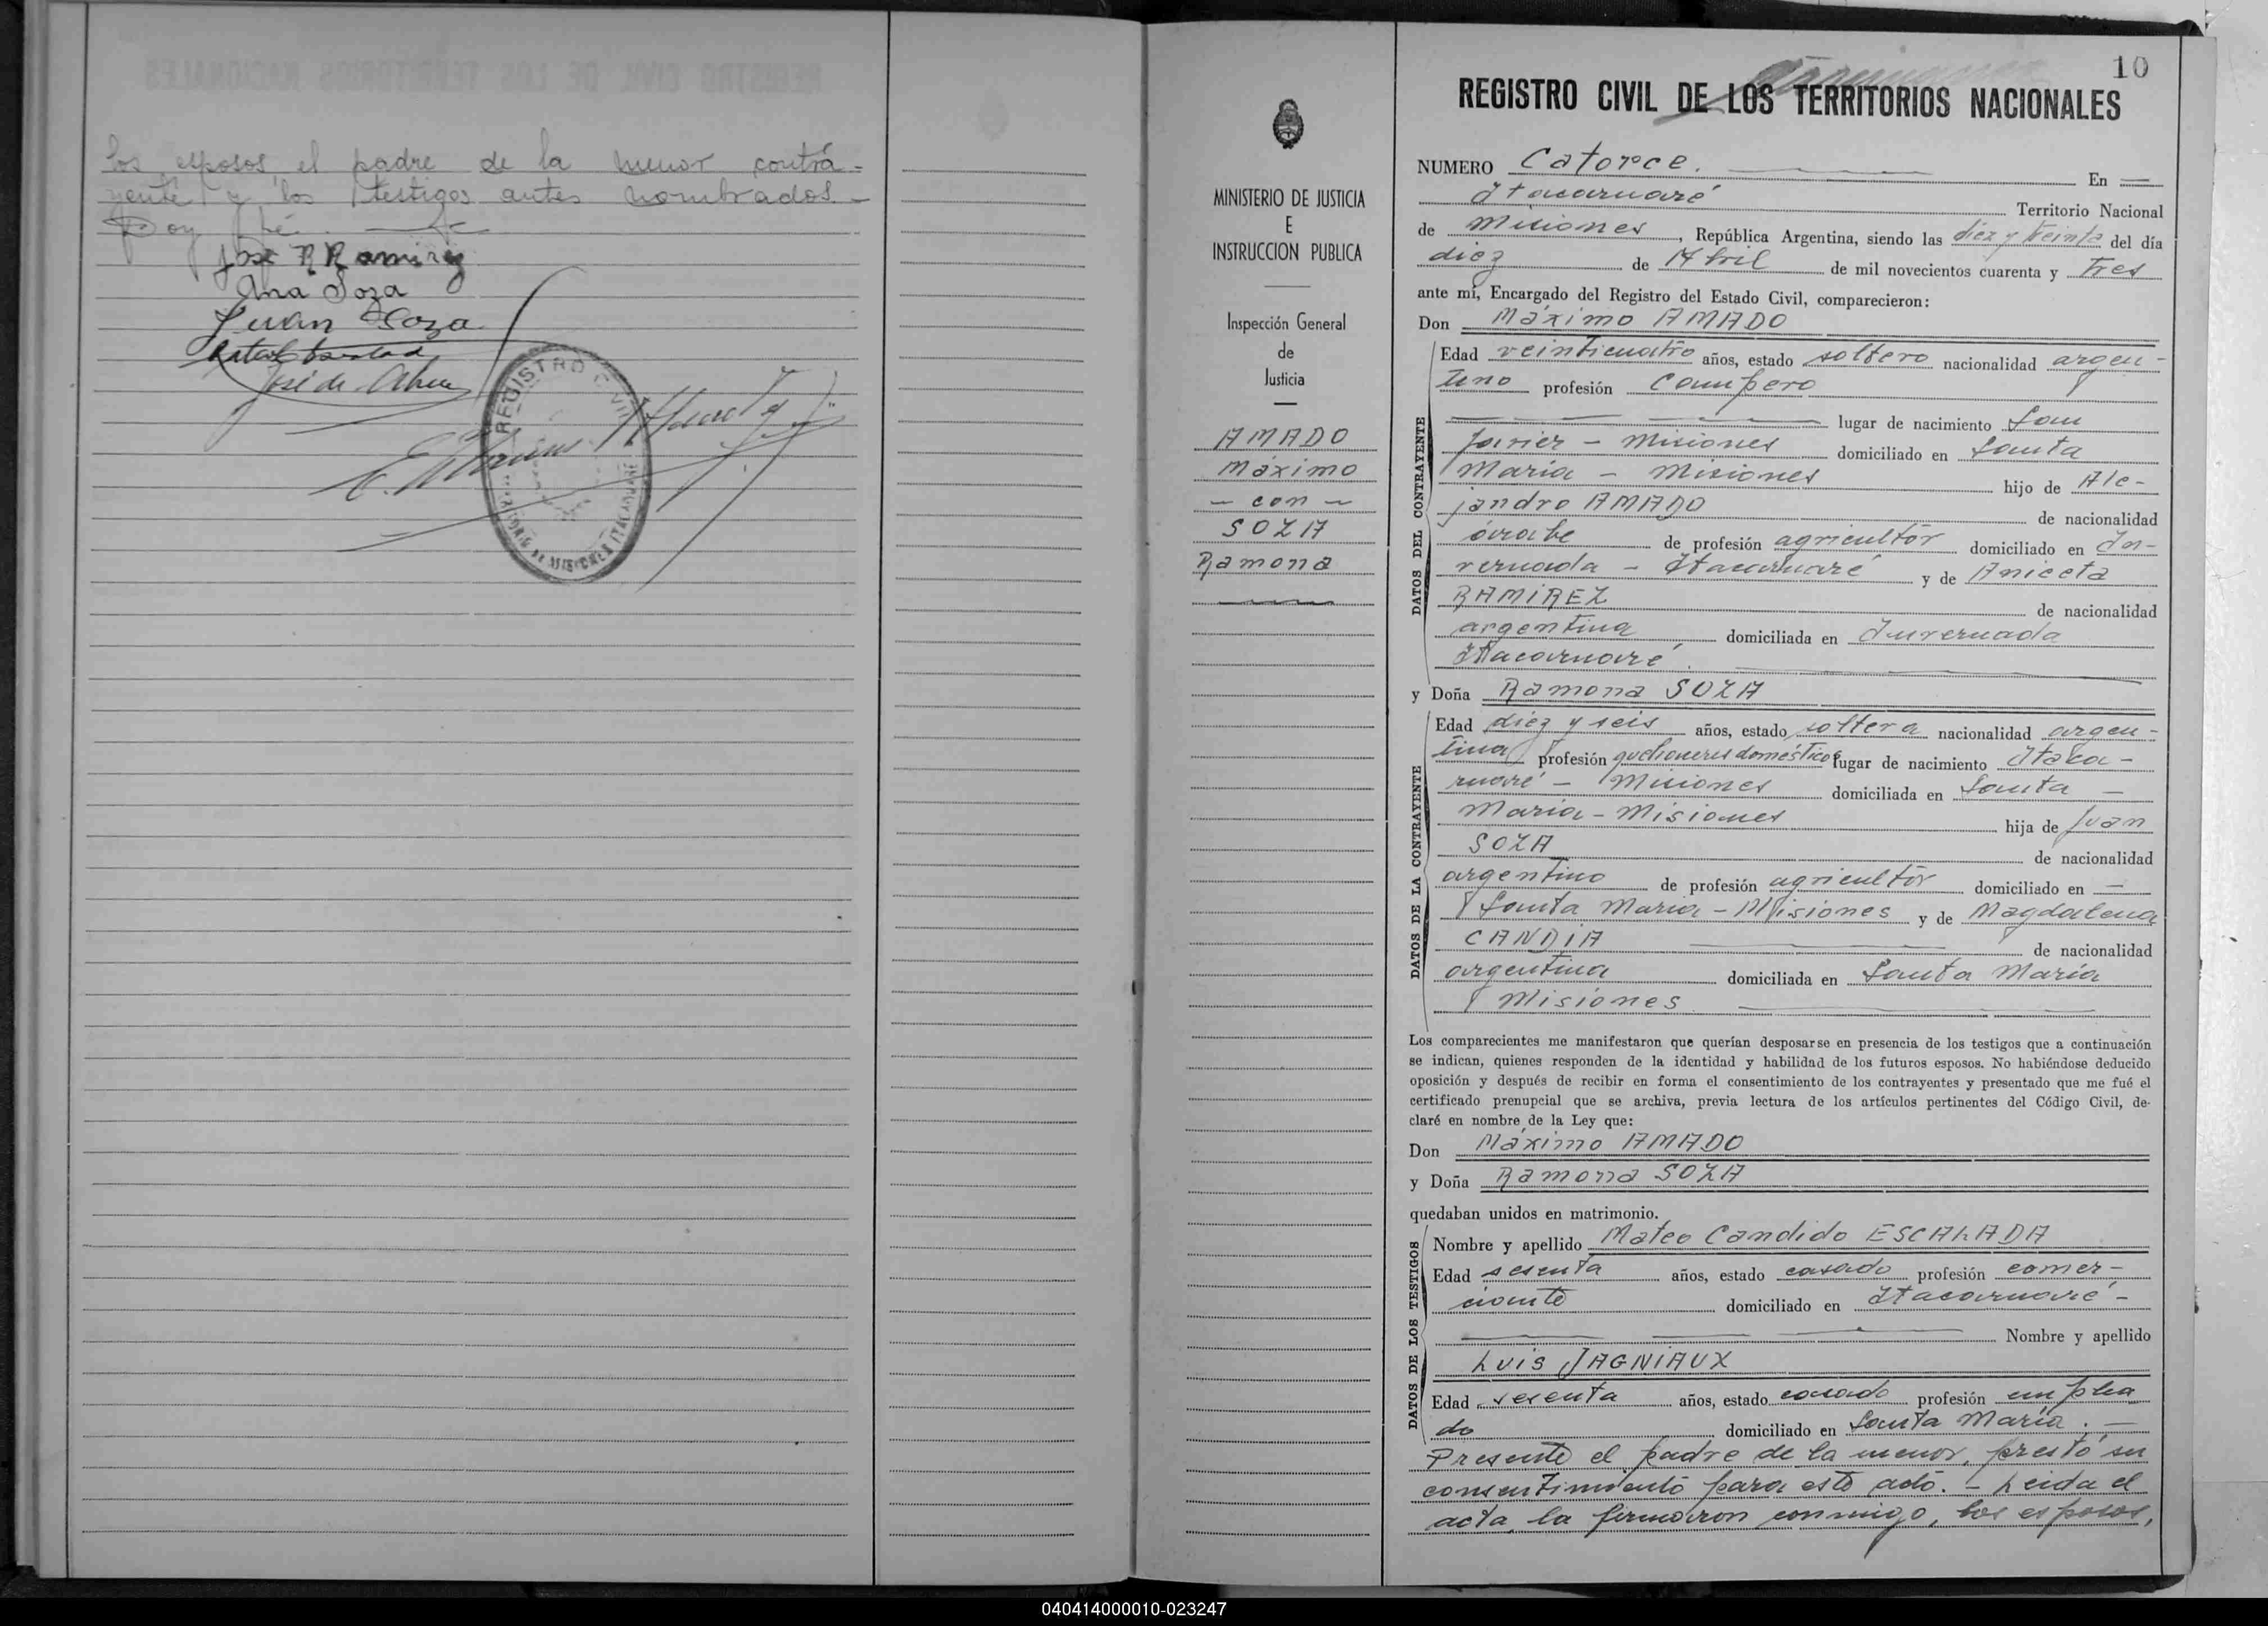 los esposos, el padre de la menor contra-
yente y los testigos antes nombrados.-
Doy fé.
José R Ramirez
Ana Soza
Juan Soza
REGISTRO CIVIL
10
REGISTRO CIVIL DE LOS TERRITORIOS NACIONALES
MINISTERIO DE JUSTICIA
E
INSTRUCCION PUBLICA
Inspección General
de
Justicia
AMADO
Máximo
- con -
SOZA
Ramona
NUMERO Catorce. En
Itacaruaré Territorio Nacional
de Misiones, República Argentina, siendo las diez y treinta del día
diez de Abril de mil novecientos cuarenta y tres
ante mí, Encargado del Registro del Estado Civil, comparecieron:
Don Máximo AMADO
DATOS DEL CONTRAYENTE
Edad veinticuatro años, estado soltero nacionalidad argen-
tino profesión Campero
lugar de nacimiento San
Javier - Misiones domiciliado en Santa
María - Misiones hijo de Ale-
jandro AMADO de nacionalidad
árabe de profesión agricultor domiciliado en In-
vernada - Itacaruaré y de Aniceta
RAMIREZ de nacionalidad
argentina domiciliada en Invernada
Itacaruaré.
y Doña Ramona SOZA
DATOS DE LA CONTRAYENTE
Edad diez y seis años, estado soltera nacionalidad argen-
tina profesión quehaceres domésticos lugar de nacimiento Itaca-
ruaré - Misiones domiciliada en Santa -
María - Misiones hija de Juan
SOZA de nacionalidad
argentino de profesión agricultor domiciliado en -
Santa María - Misiones y de Magdalena
CANDIA de nacionalidad
argentina domiciliada en Santa María
Misiones
Los comparecientes me manifestaron que querían desposarse en presencia de los testigos que a continuación
se indican, quienes responden de la identidad y habilidad de los futuros esposos. No habiéndose deducido
oposición y después de recibir en forma el consentimiento de los contrayentes y presentado que me fué el
certificado prenupcial que se archiva, previa lectura de los artículos pertinentes del Código Civil, de-
claré en nombre de la Ley que:
Don Máximo AMADO
y Doña Ramona SOZA
quedaban unidos en matrimonio.
DATOS DE LOS TESTIGOS
Nombre y apellido Mateo Candido ESCALADA
Edad sesenta años, estado casado profesión comer-
ciante domiciliado en Itacaruaré -
Nombre y apellido
Luis JAGNIAUX
Edad sesenta años, estado casado profesión emplea
do domiciliado en Santa María. -
Presente el padre de la menor, prestó su
consentimiento para este acto. - Leida el
acta, la firmaron conmigo, los esposos,
040414000010-023247